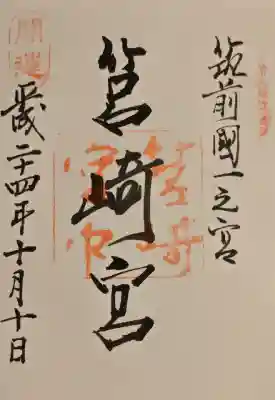 筑前國一之宮
筥崎宮
平成二十四年十月十日
開運